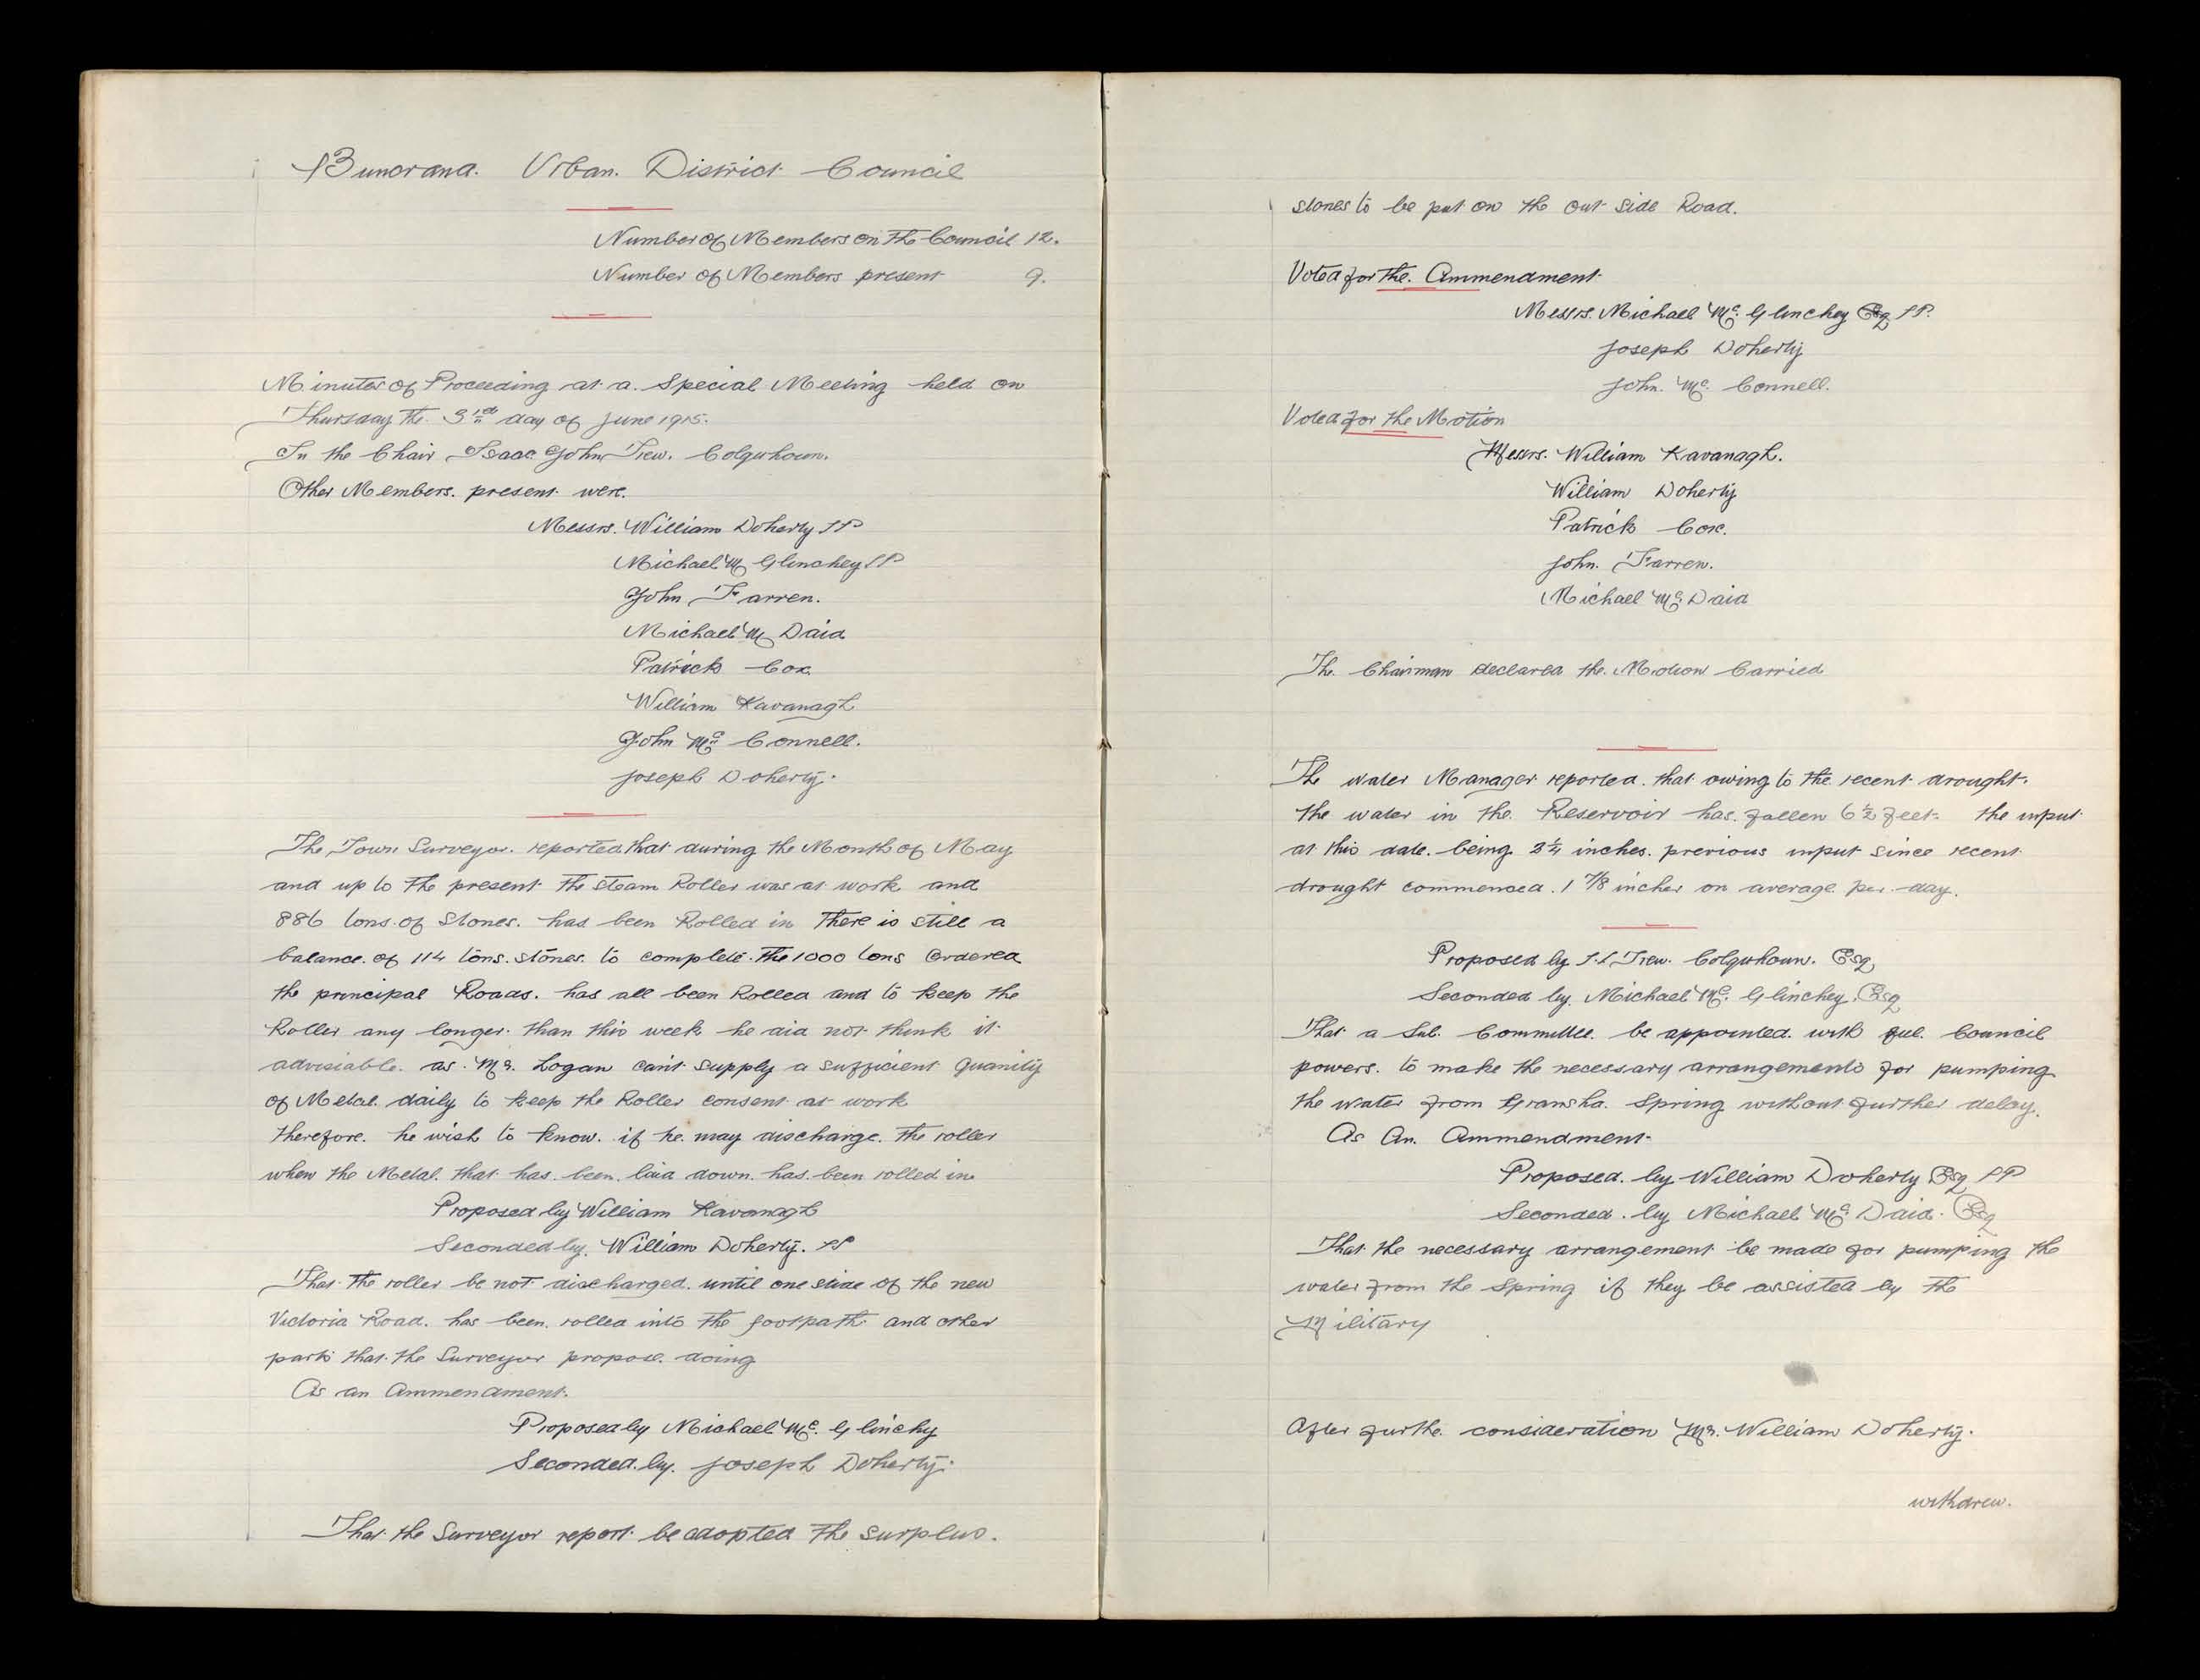 Buncrana. Urban. District Council
Number of Members on The Council 12.
Number of Members present 9.
Minutes of Proceeding at a Special Meeting held on
Thursday the 3rd day of June 1915.
In the Chair Isaac John Trew. Colquhoun.
Other Members. present were.
Messrs. William Doherty JP
Michael Mc Glinchey JP
John Farren.
Michael Mc Daid
Patrick Cox
William Kavanagh
John Mc Connell.
Joseph Doherty.
The Town Surveyor. reported that during the Month of May
and up to the present the steam Roller was at work and
886 tons of Stones. has been Rolled in There is still a
balance. of 114 tons. stones. to complete. the 1000 tons Ordered
the principal Roads. has all been Rolled and to keep the
Roller any longer. than this week he did not think it
advisiable. as. Mr. Logan can't supply a sufficient quanity
of Metal. daily to keep the Roller consent at work
therefore. he wish to know. if he. may discharge. the roller
when the Metal. that has. been. laid down. has been rolled in
Proposed by William Kavanagh
Seconded by. William Doherty. JP
That the roller be not discharged. until one side of the new
Victoria Road. has been. rolled into the footpath and other
parts that the Surveyor propose. doing
As an Ammendment.
Proposed by Michael Mc. Glinchy
Seconded. by. Joseph Doherty.
That the Surveyor report be adopted the surplus.
stones to be put on the out side Road.
Voted for the. Ammendment
Messrs. Michael Mc. Glinchey Esq JP.
Joseph Doherty
John. Mc. Connell.
Voted for the Motion
Messrs. William Kavanagh.
William Doherty
Patrick Cox.
John. Farren.
Michael Mc. Daid
The Chairman declared the Motion Carried
The water Manager reported. that owing to the recent drought.
the water in the Reservoir has. fallen 6½ feet. the input
at this date. being 3¼ inches. previous input since recent
drought commenced. 1 7/8 inches on average per. day.
Proposed by I.J. Trew. Colquhoun. Esq
Seconded by. Michael Mc. Glinchey. Esq
That a Sub. Committee. be appointed. with full. Council
powers. to make the necessary arrangements for pumping
the water from Gransha. Spring without further delay.
As An. Ammendment.
Proposed. by William Doherty Esq JP
Seconded. by Michael Mc. Daid. Esq
That the necessary arrangement be made for pumping the
water from the Spring if they be assisted by the
Military
After furthe. consideration Mr. William Doherty.
withdrew.